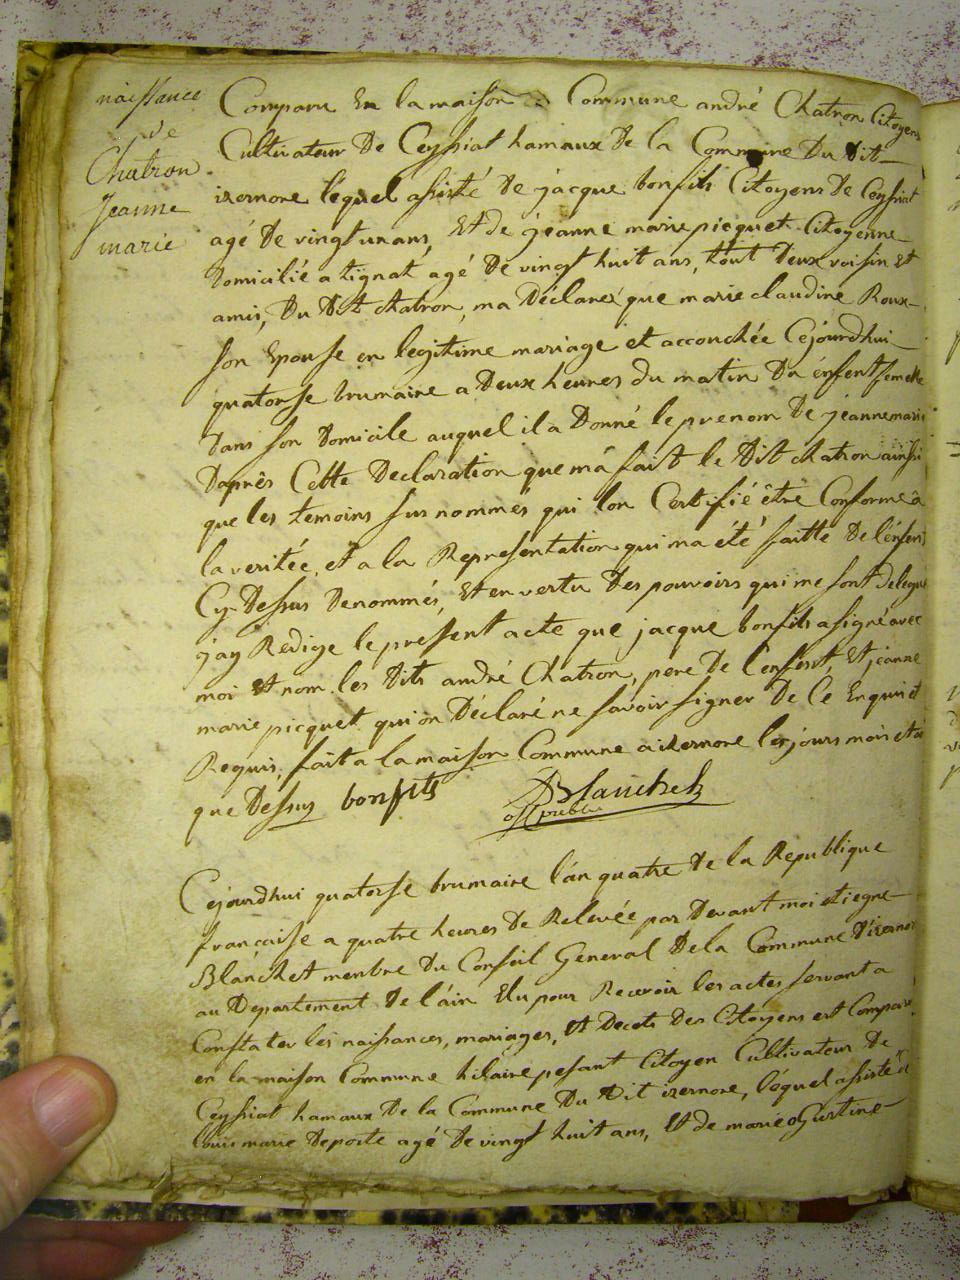 naissance
de
Chatron
Jeanne
marie
Comparu En la maison Commune andré Chatron Citoyens
Cultivateur De Ceyssiat hamaux De la Commune Du Dit
izernore lequel assisté De jacque bonfils Citoyens De Ceyssiat
agé De vingt un ans, Et de jeanne marie picquet Citoyenne
Domicilié a tignat agé De vingt huit ans, tout Deux voisin Et
amis, Du Dit chatron, ma Déclaré que marie claudine Roux
son Epouse en legitime mariage et accouchée Cejourdhui
quatorse brumaire a Deux heures du matin Du énfent femelle
Dans son Domicile auquel il a Donné le prenom De jeanne marie
Daprês Cette Declaration que mâ fait le Dit chatron ainsi
que les temoins surnommés qui lon Certifié être Conforme â
la veritée, et a la Représentation qui ma été faitte De lénfent
Cy-Dessus Denommés, Et en vertu Des pouvoirs qui me sont delegué
jay Redige le present acte que jacque bonfils a signé avec
moi Et nom les Dits andré Chatron, pere De lenfent, Et jeanne
marie picquet qui on Déclaré ne savoir signer De Ce Enquis et
Requis, fait a la maison Commune a izernore les jours mois et a
que Dessus bonfils
Blanchet
off. public
Cejourdhui quatorse brumaire l'an quatre De la Republique
francaise a quatre heures De Rellevée par Devant moi etiegne
Blanchet menbre Du Conseil General De la Commune D'izernore
au Departement De l'ain Elu pour Recevoir les actes servant a
Constater les naissances, mariages, Et Decets Des Citoyens est Comparu
en la maison Commune hilaire pesant Citoyen Cultivateur De
Ceyssiat hamaux De la Commune Du Dit izernore, léquel assisté d
louis marie Deporte agé De vingt huit ans, Et de marie ogustine